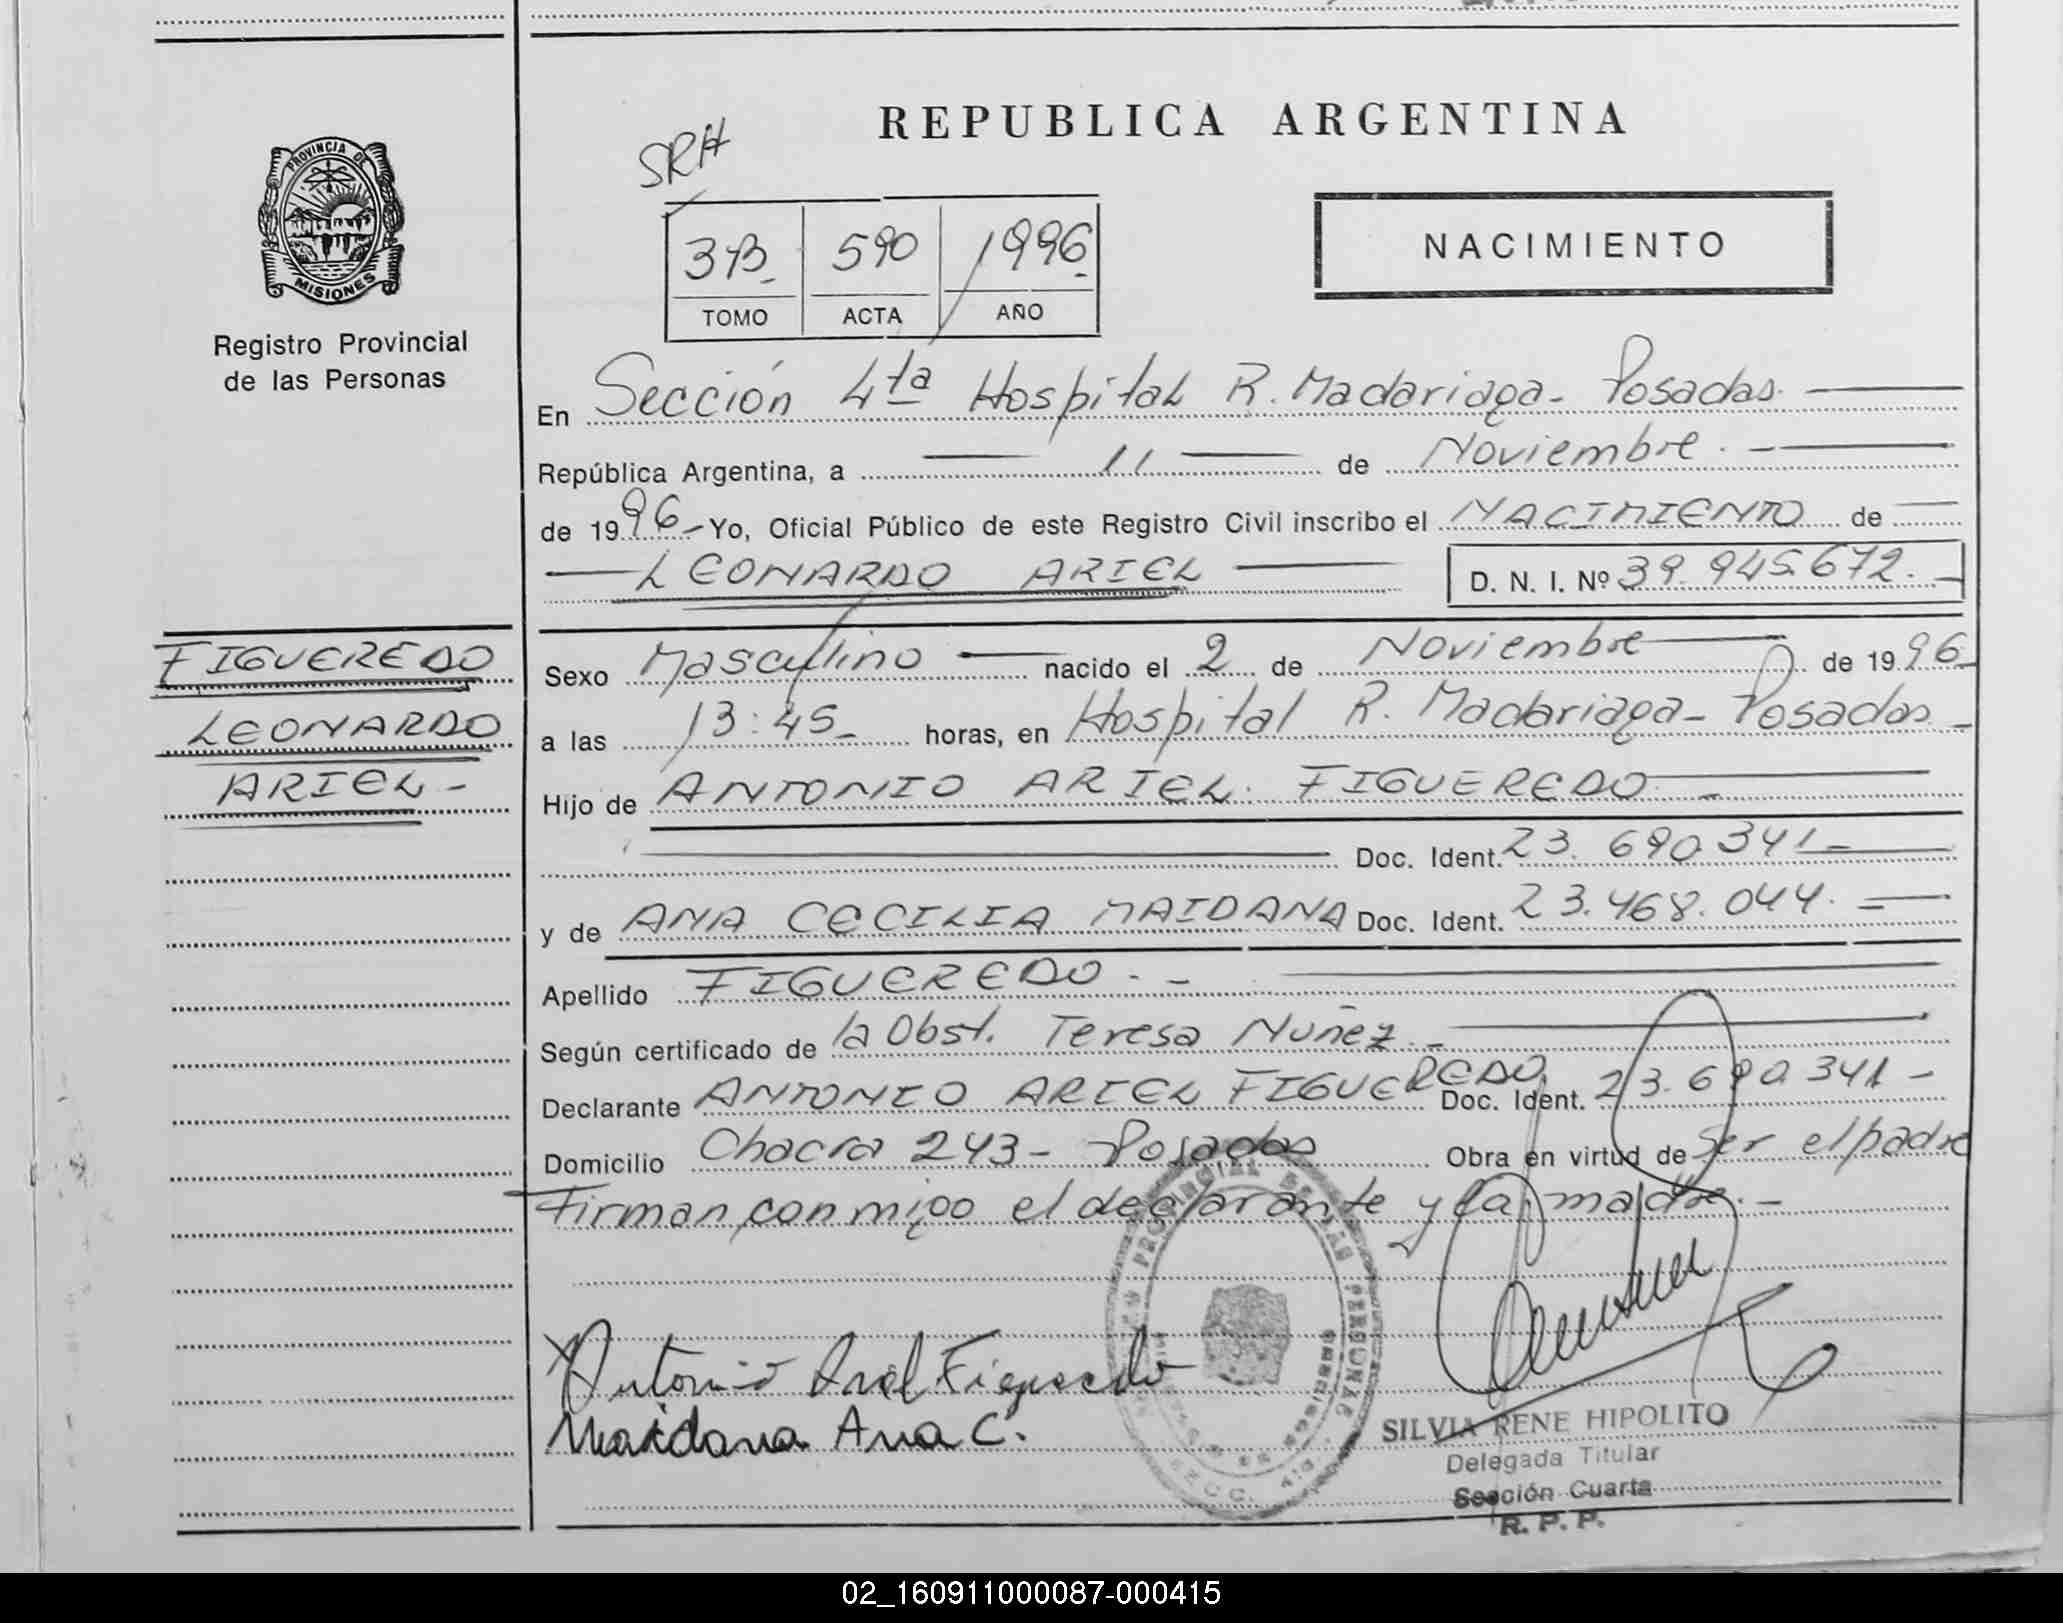 REPUBLICA ARGENTINA
SRH
3B 590 1996
TOMO ACTA AÑO
NACIMIENTO
PROVINCIA DE
MISIONES
Registro Provincial
de las Personas
En Sección 4ta Hospital R. Madariaga - Posadas.
República Argentina, a 11 de Noviembre.
de 1996 - Yo, Oficial Público de este Registro Civil inscribo el NACIMIENTO de
LEONARDO ARIEL D. N. I. Nº 39.945.672.
FIGUEREDO
LEONARDO
ARIEL -
Sexo Masculino nacido el 2 de Noviembre de 1996
a las 13:45 horas, en Hospital R. Madariaga - Posadas -
Hijo de ANTONIO ARIEL FIGUEREDO
Doc. Ident. 23.690.341
y de ANA CECILIA MAIDANA Doc. Ident. 23.468.044.
Apellido FIGUEREDO. -
Según certificado de la Obst. Teresa Nuñez
Declarante ANTONIO ARIEL FIGUEREDO Doc. Ident. 23.690.341 -
Domicilio Chacra 243 - Posadas Obra en virtud de Ser el padre
Firman conmigo el declarante y la madre. -
Antonio Ariel Figueredo
Maidana Ana C.
PROVINCIAL DE LAS PERSONAS
SILVIA RENE HIPOLITO
Delegada Titular
Sección Cuarta
R. P. P.
02_160911000087-000415